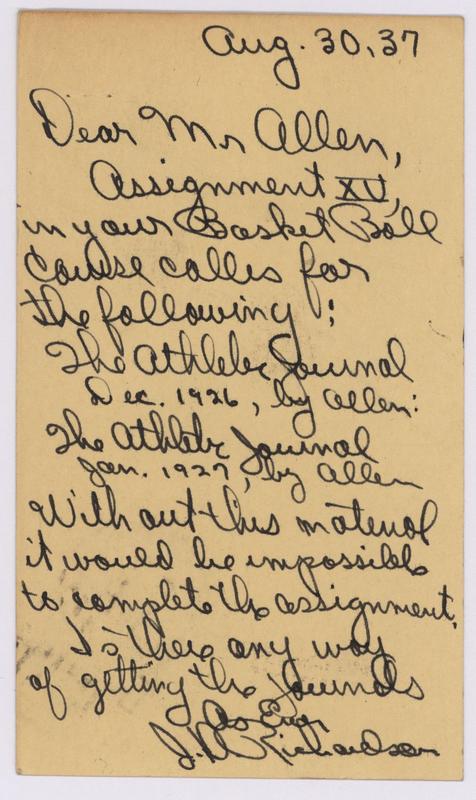 Aug. 30, 37
Dear Mr Allen,
Assignment XV,
in your Basket Ball
Course calles for
the following:
The Athletic Journal
Dec. 1926, by Allen:
The Athletic Journal
Jan. 1927, by Allen
Without this material
it would be impossible
to complete the assignment.
Is there any way
of getting the Journals
As Ever
J. Richardson